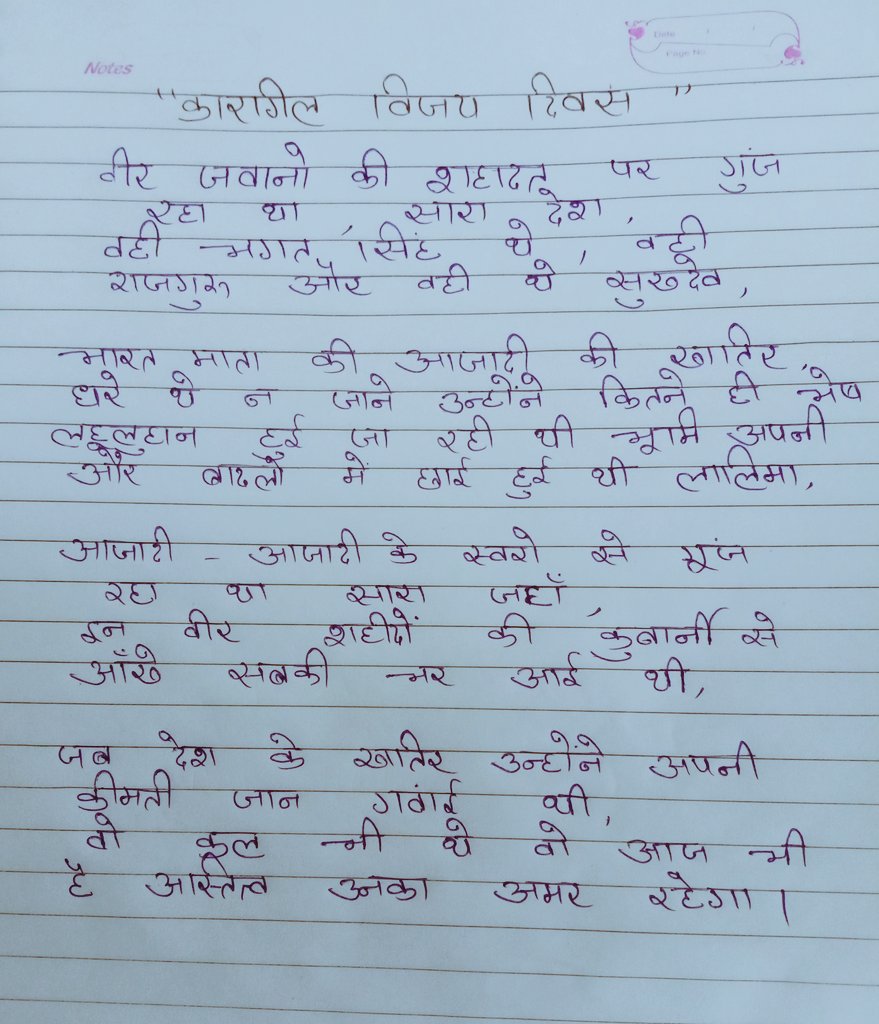 Notes
Date
Page No.
"कारगिल विजय दिवस"
वीर जवानो की शहादत पर गुंज
रहा था सारा देश,
वही भगत सिंह थे, वही
राजगुरु और वही थे सुखदेव,
भारत माता की आजादी की खातिर,
धरे थे न जाने उन्होंने कितने ही भेष
लहूलुहान हुई जा रही थी भूमि अपनी
और बादलों में छाई हुई थी लालिमा,
आजादी - आजादी के स्वरो से गूंज
रहा था सारा जहाँ,
इन वीर शहीदों की कुबार्नी से
आँखे सबकी भर आई थी,
जब देश के खातिर उन्होंने अपनी
कीमती जान गवांई थी,
वो कुल भी थे वो आज भी
है अस्तित्व उनका अमर रहेगा।